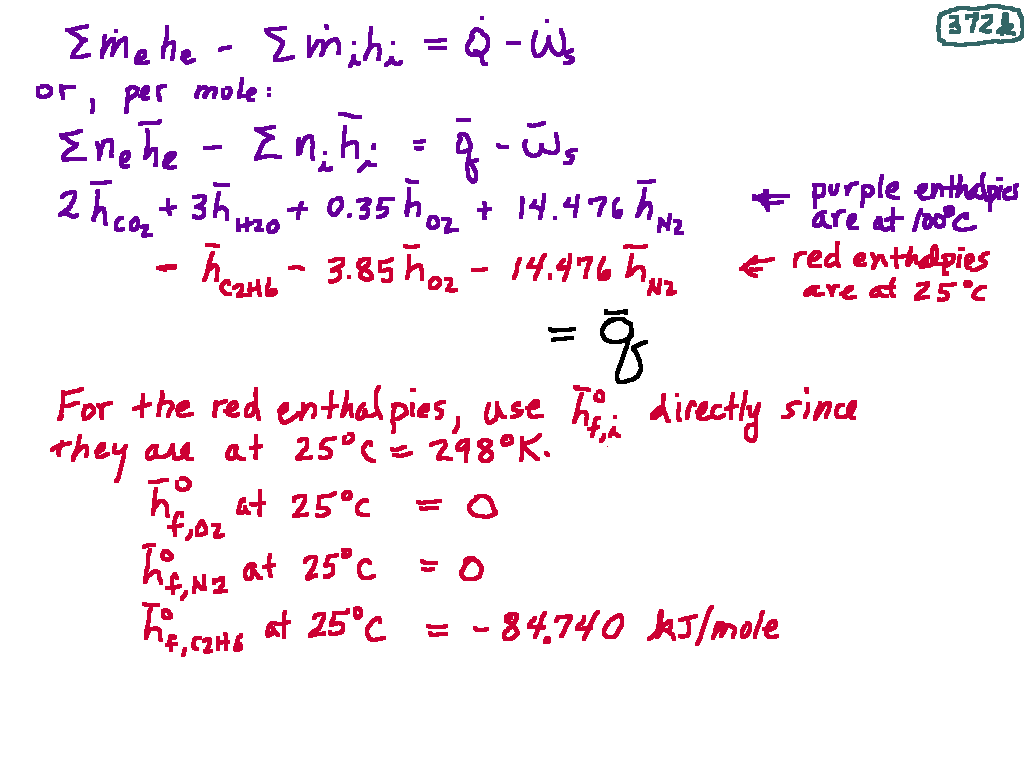 372k
Σṁₑhₑ - Σṁᵢhᵢ = Q̇ - Ẇₛ
or, per mole:
Σnₑh̄ₑ - Σnᵢh̄ᵢ = q̄ - w̄ₛ
2h̄CO2 + 3h̄H2O + 0.35h̄O2 + 14.476h̄N2 ← purple enthalpies
are at 100°C
- h̄C2H6 - 3.85h̄O2 - 14.476h̄N2 ← red enthalpies
are at 25°C
= q̄
For the red enthalpies, use h̄°f,i directly since
they are at 25°C = 298°K.
h̄°f,O2 at 25°C = 0
h̄°f,N2 at 25°C = 0
h̄°f,C2H6 at 25°C = -84.740 kJ/mole